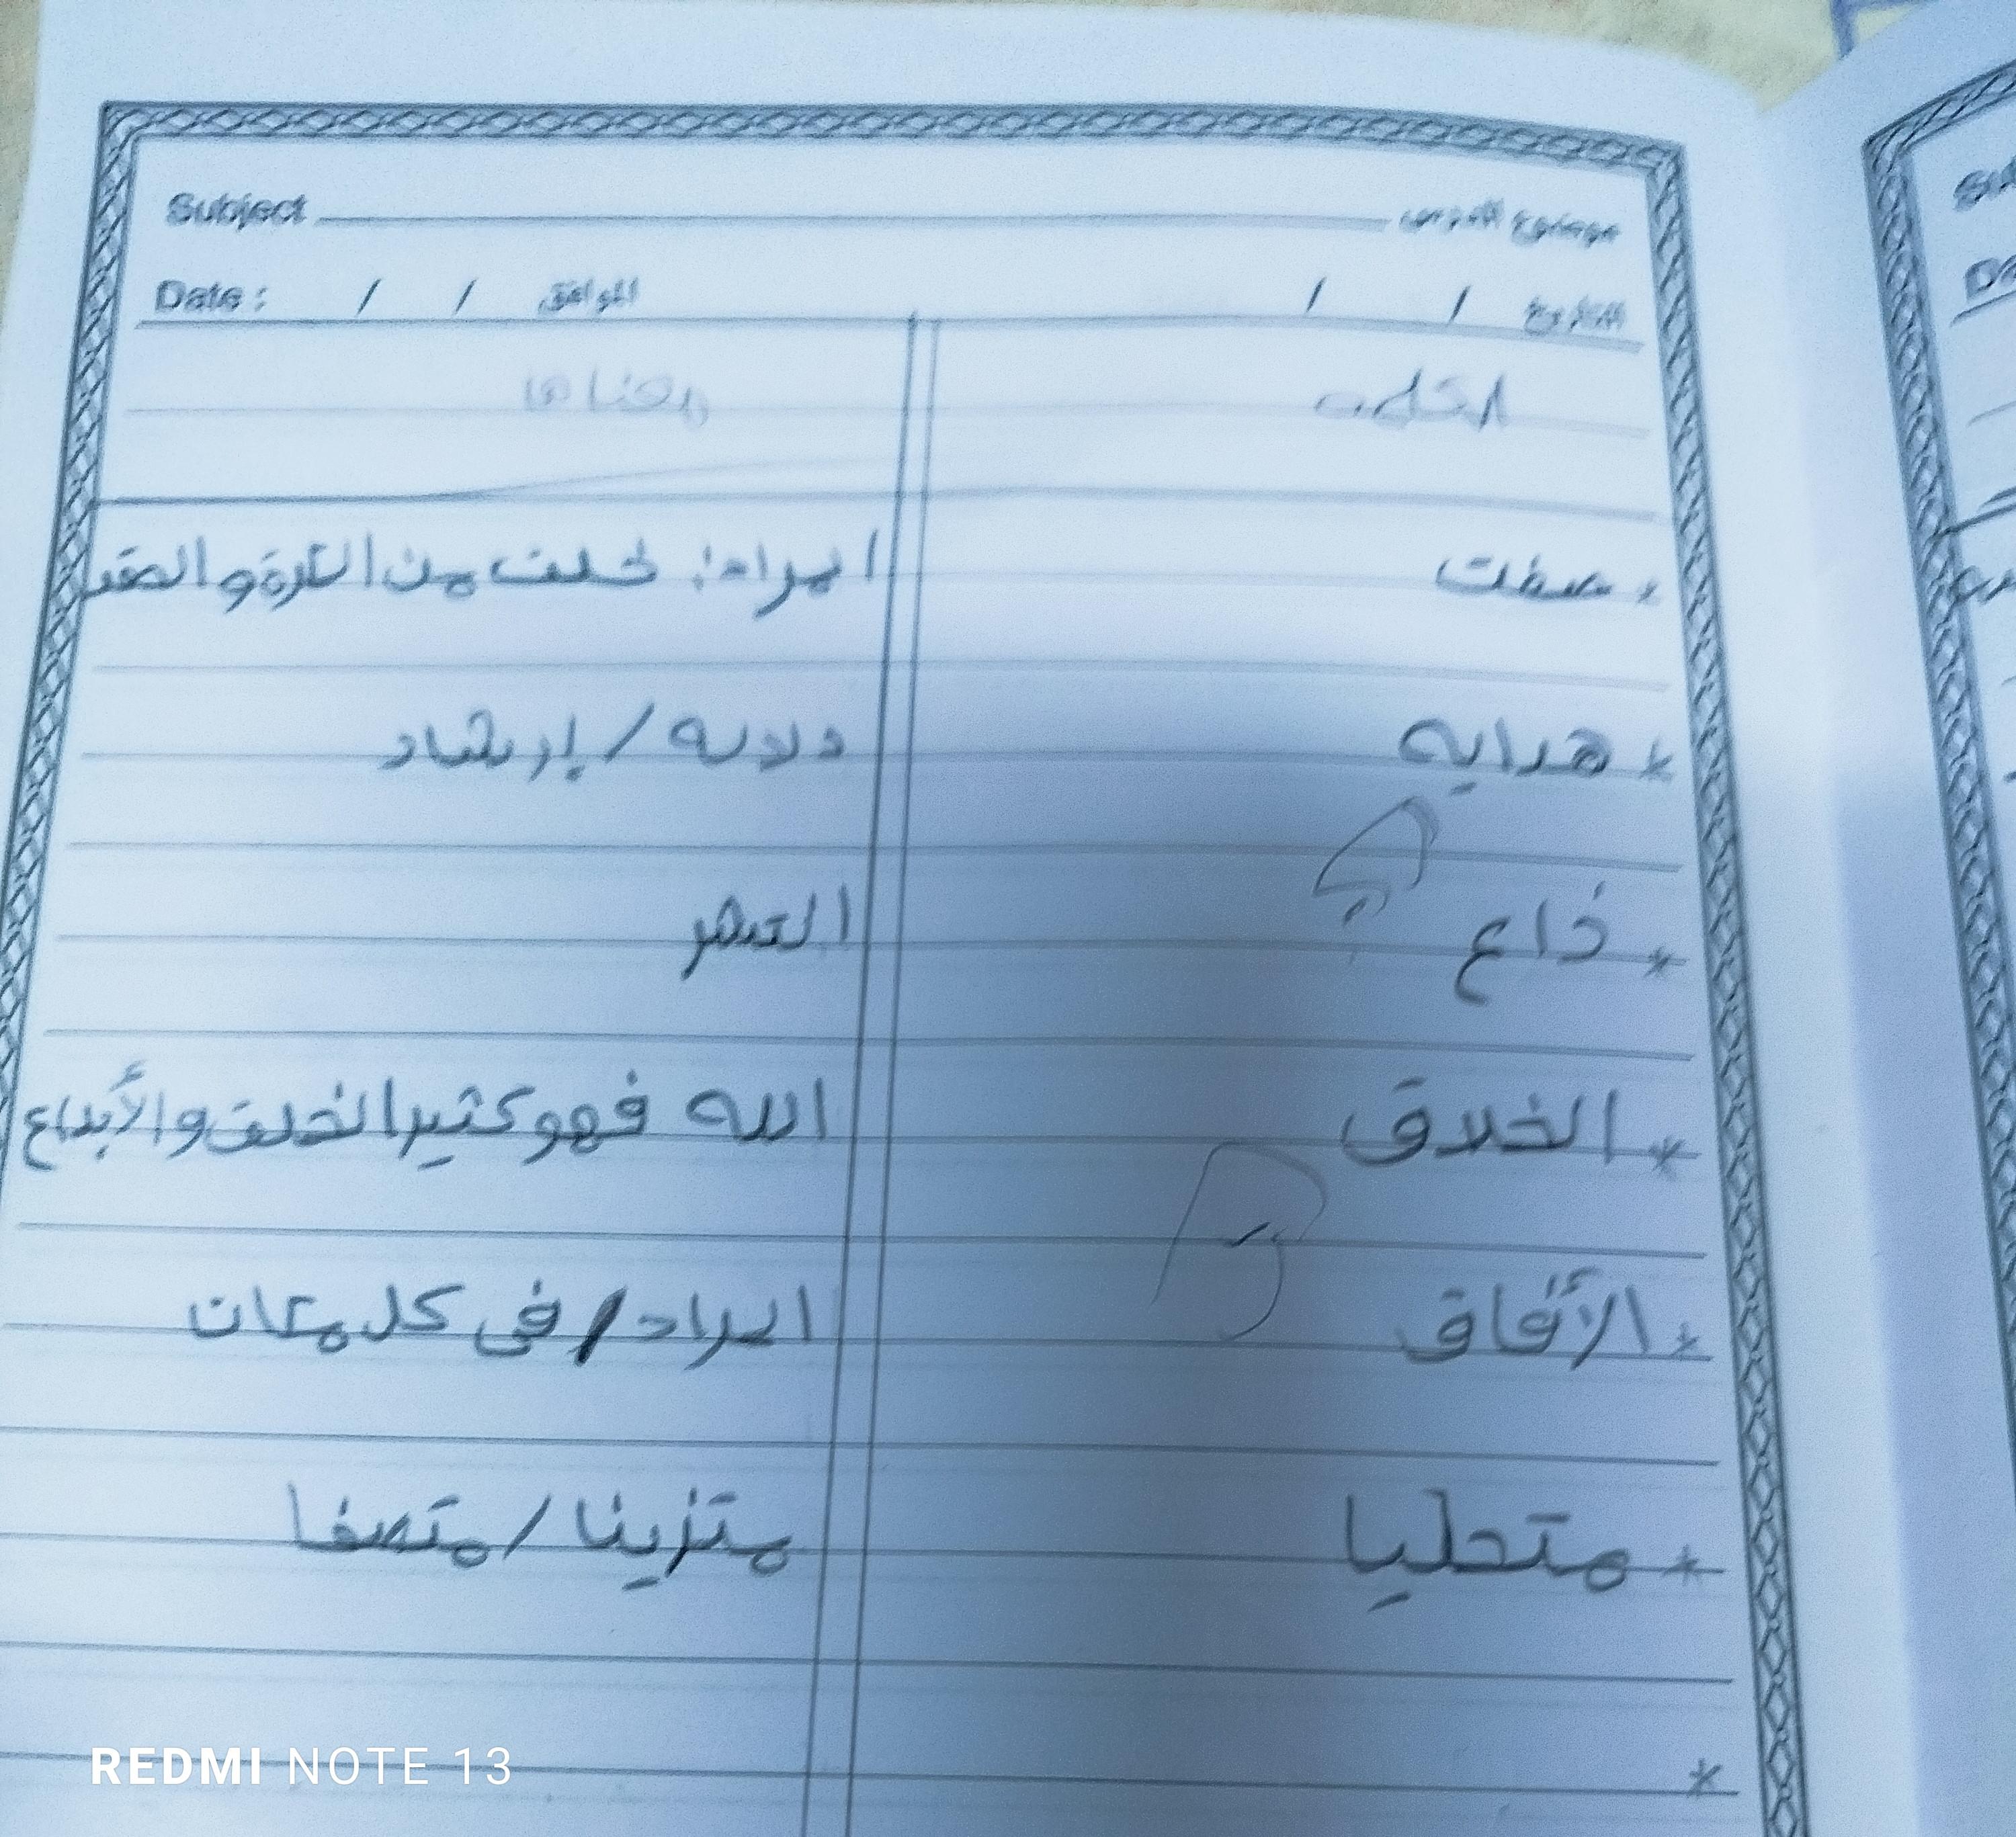 Subject موضوع الدرس
Date : / / الموافق / / التاريخ
الكلمه معناها
* صفت المراد: خلت من الكره والحقد
* هدايه دلاله / إرشاد
* ذاع انتشر
* الخلاق الله فهو كثير الخلق والأبداع
* الأفاق المراد / فى كل مكان
* متحليا متزينا / متصفا
*
REDMI NOTE 13